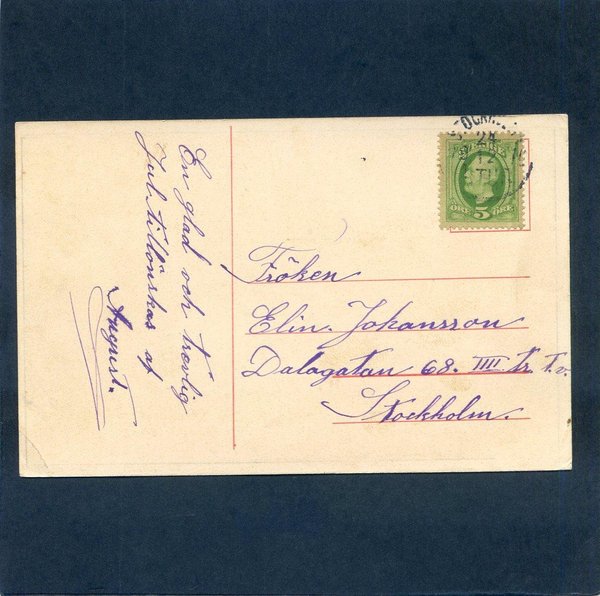 En glad och trevlig
Jul tillönskas af
August.
STOCKH
5
ÖRE ÖRE
Fröken
Elin Johansson
Dalagatan 68. IIII tr. t.v.
Stockholm.